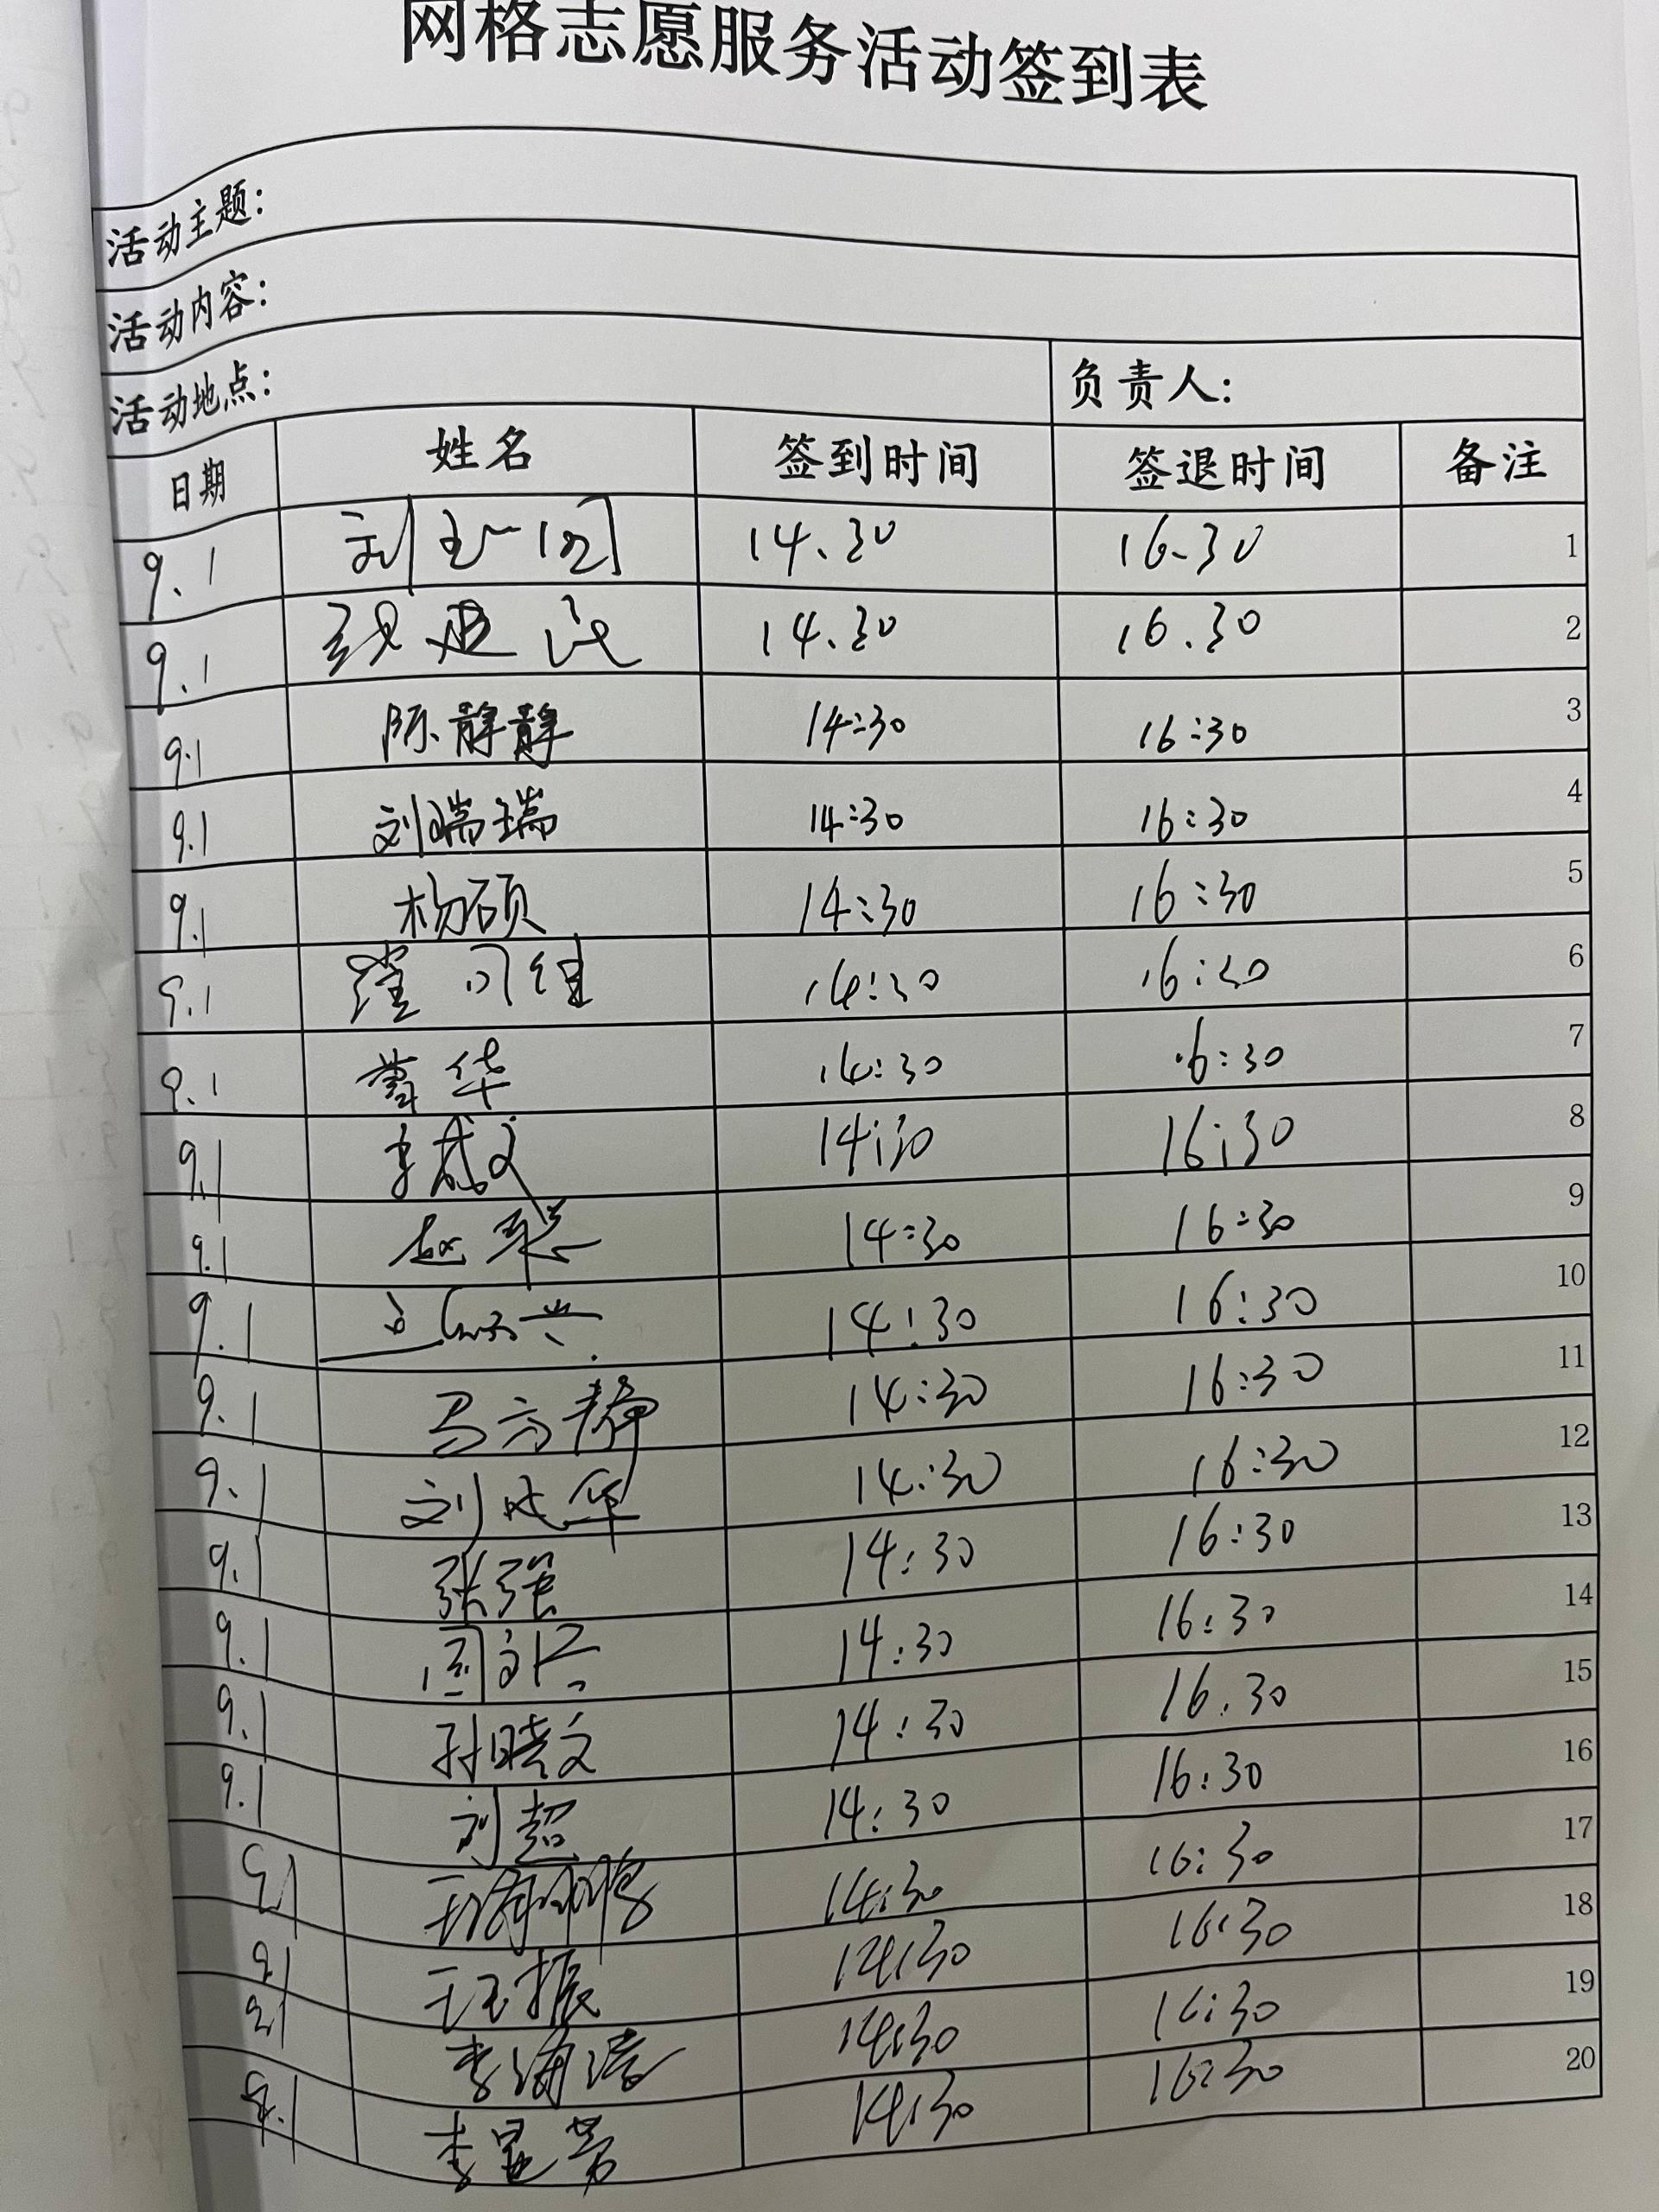 网格志愿服务活动签到表
活动主题:
活动内容:
活动地点: 负责人:
日期 姓名 签到时间 签退时间 备注
9.1 刘 14.30 16.30 1
9.1 14.30 16.30 2
9.1 陈静静 14:30 16:30 3
9.1 刘瑞瑞 14:30 16:30 4
9.1 杨硕 14:30 16:30 5
9.1 14:30 16:30 6
9.1 华 14:30 16:30 7
9.1 李 文 14:30 16:30 8
9.1 赵 14:30 16:30 9
9.1 14:30 16:30 10
9.1 马方静 14:30 16:30 11
9.1 刘 华 14:30 16:30 12
9.1 张强 14:30 16:30 13
9.1 周 14:30 16:30 14
9.1 孙晓文 14:30 16.30 15
9.1 刘超 14:30 16:30 16
9.1 王 14:30 16:30 17
9.1 王玉振 14:30 16:30 18
9.1 李海涛 14:30 16:30 19
9.1 李 芳 14:30 16:30 20